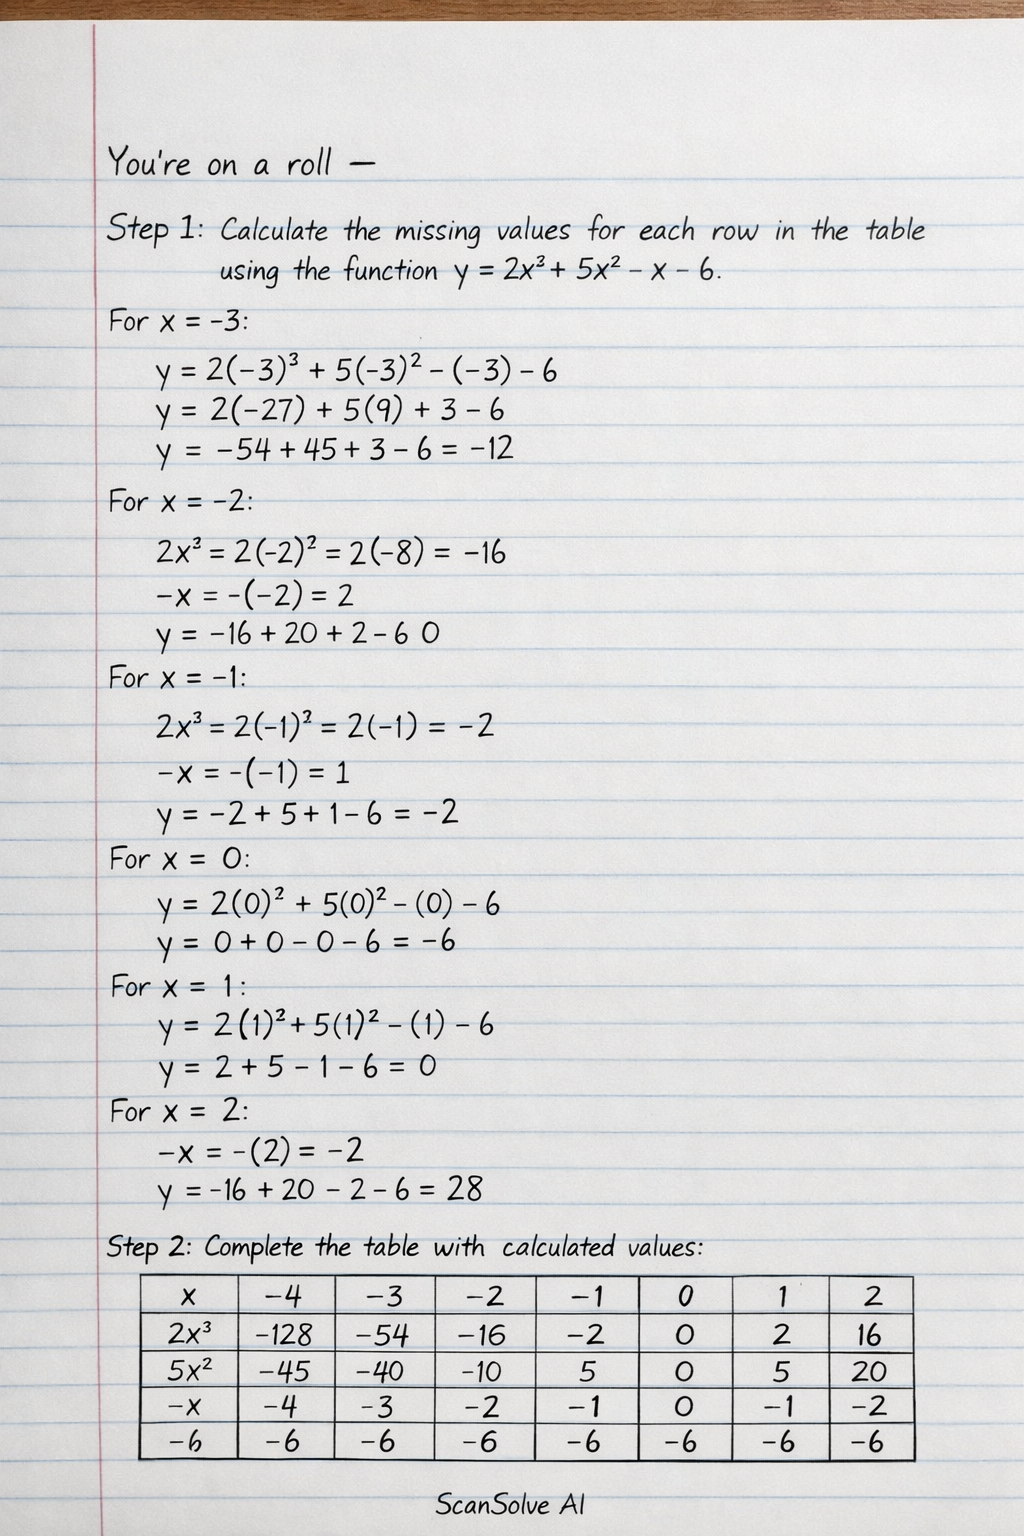 You're on a roll —
Step 1: Calculate the missing values for each row in the table
using the function y = 2x³ + 5x² − x − 6.
For x = −3:
y = 2(−3)³ + 5(−3)² − (−3) − 6
y = 2(−27) + 5(9) + 3 − 6
y = −54 + 45 + 3 − 6 = −12
For x = −2:
2x³ = 2(−2)² = 2(−8) = −16
−x = −(−2) = 2
y = −16 + 20 + 2 − 6 0
For x = −1:
2x³ = 2(−1)² = 2(−1) = −2
−x = −(−1) = 1
y = −2 + 5 + 1 − 6 = −2
For x = 0:
y = 2(0)² + 5(0)² − (0) − 6
y = 0 + 0 − 0 − 6 = −6
For x = 1:
y = 2(1)² + 5(1)² − (1) − 6
y = 2 + 5 − 1 − 6 = 0
For x = 2:
−x = −(2) = −2
y = −16 + 20 − 2 − 6 = 28
Step 2: Complete the table with calculated values:
x −4 −3 −2 −1 0 1 2
2x³ −128 −54 −16 −2 0 2 16
5x² −45 −40 −10 5 0 5 20
−x −4 −3 −2 −1 0 −1 −2
−6 −6 −6 −6 −6 −6 −6 −6
ScanSolve AI